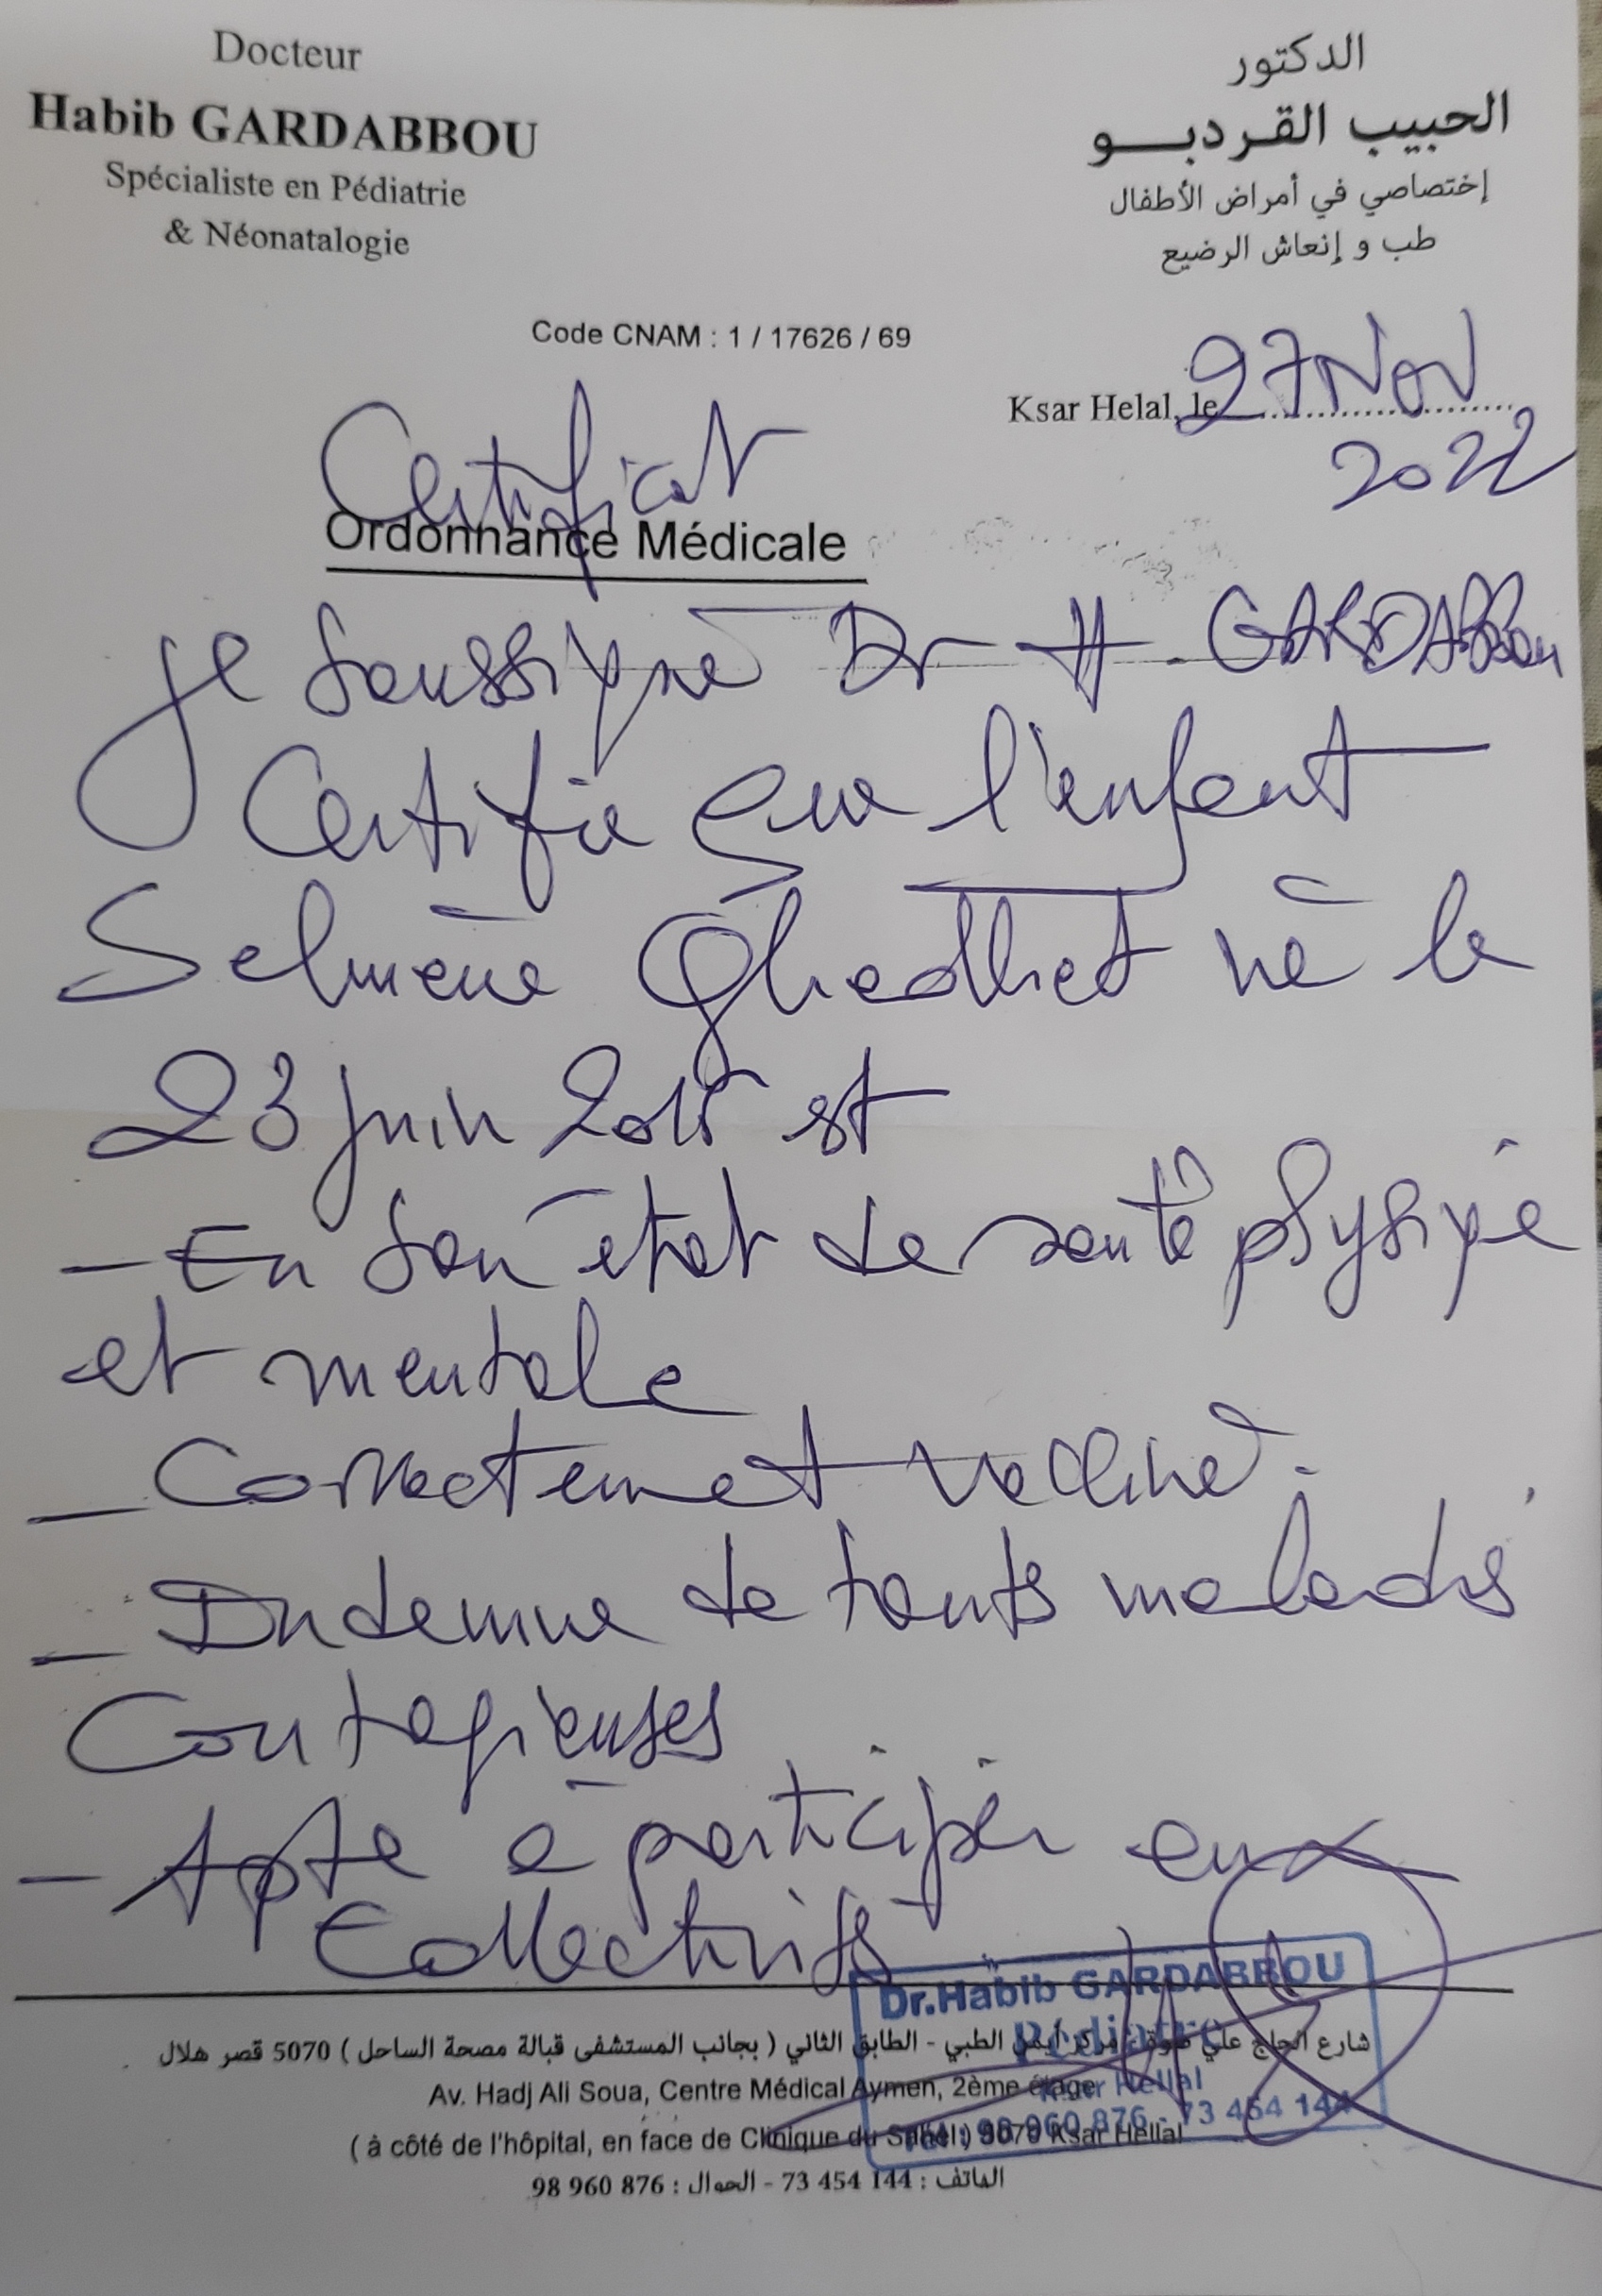 Docteur
Habib GARDABBOU
Spécialiste en Pédiatrie
& Néonatalogie
الدكتور
الحبيب القردبو
إختصاصي في أمراض الأطفال
طب و إنعاش الرضيع
Code CNAM : 1 / 17626 / 69
Ksar Helal, le 27 Nov
2022
Certificat
Ordonnance Médicale
Je soussigné Dr H. GARDABBou
Certifie que l'enfant
Selmène né le
23 juin 2015 est
- En bon état de santé physique
et mentale
- Correctement vacciné.
- Indemne de toutes maladies
Contagieuses
- Apte à participer aux
Collectivités
Dr.Habib GARDABBOU
Pédiatre
Ksar Hellal
Tél : 98 960 876 - 73 454 144
شارع الحاج علي صوة - مركز أيمن الطبي - الطابق الثاني ( بجانب المستشفى قبالة مصحة الساحل ) 5070 قصر هلال
Av. Hadj Ali Soua, Centre Médical Aymen, 2ème étage
( à côté de l'hôpital, en face de Clinique du Sahel ) 5070 Ksar Hellal
الهاتف : 144 454 73 - الجوال : 876 960 98